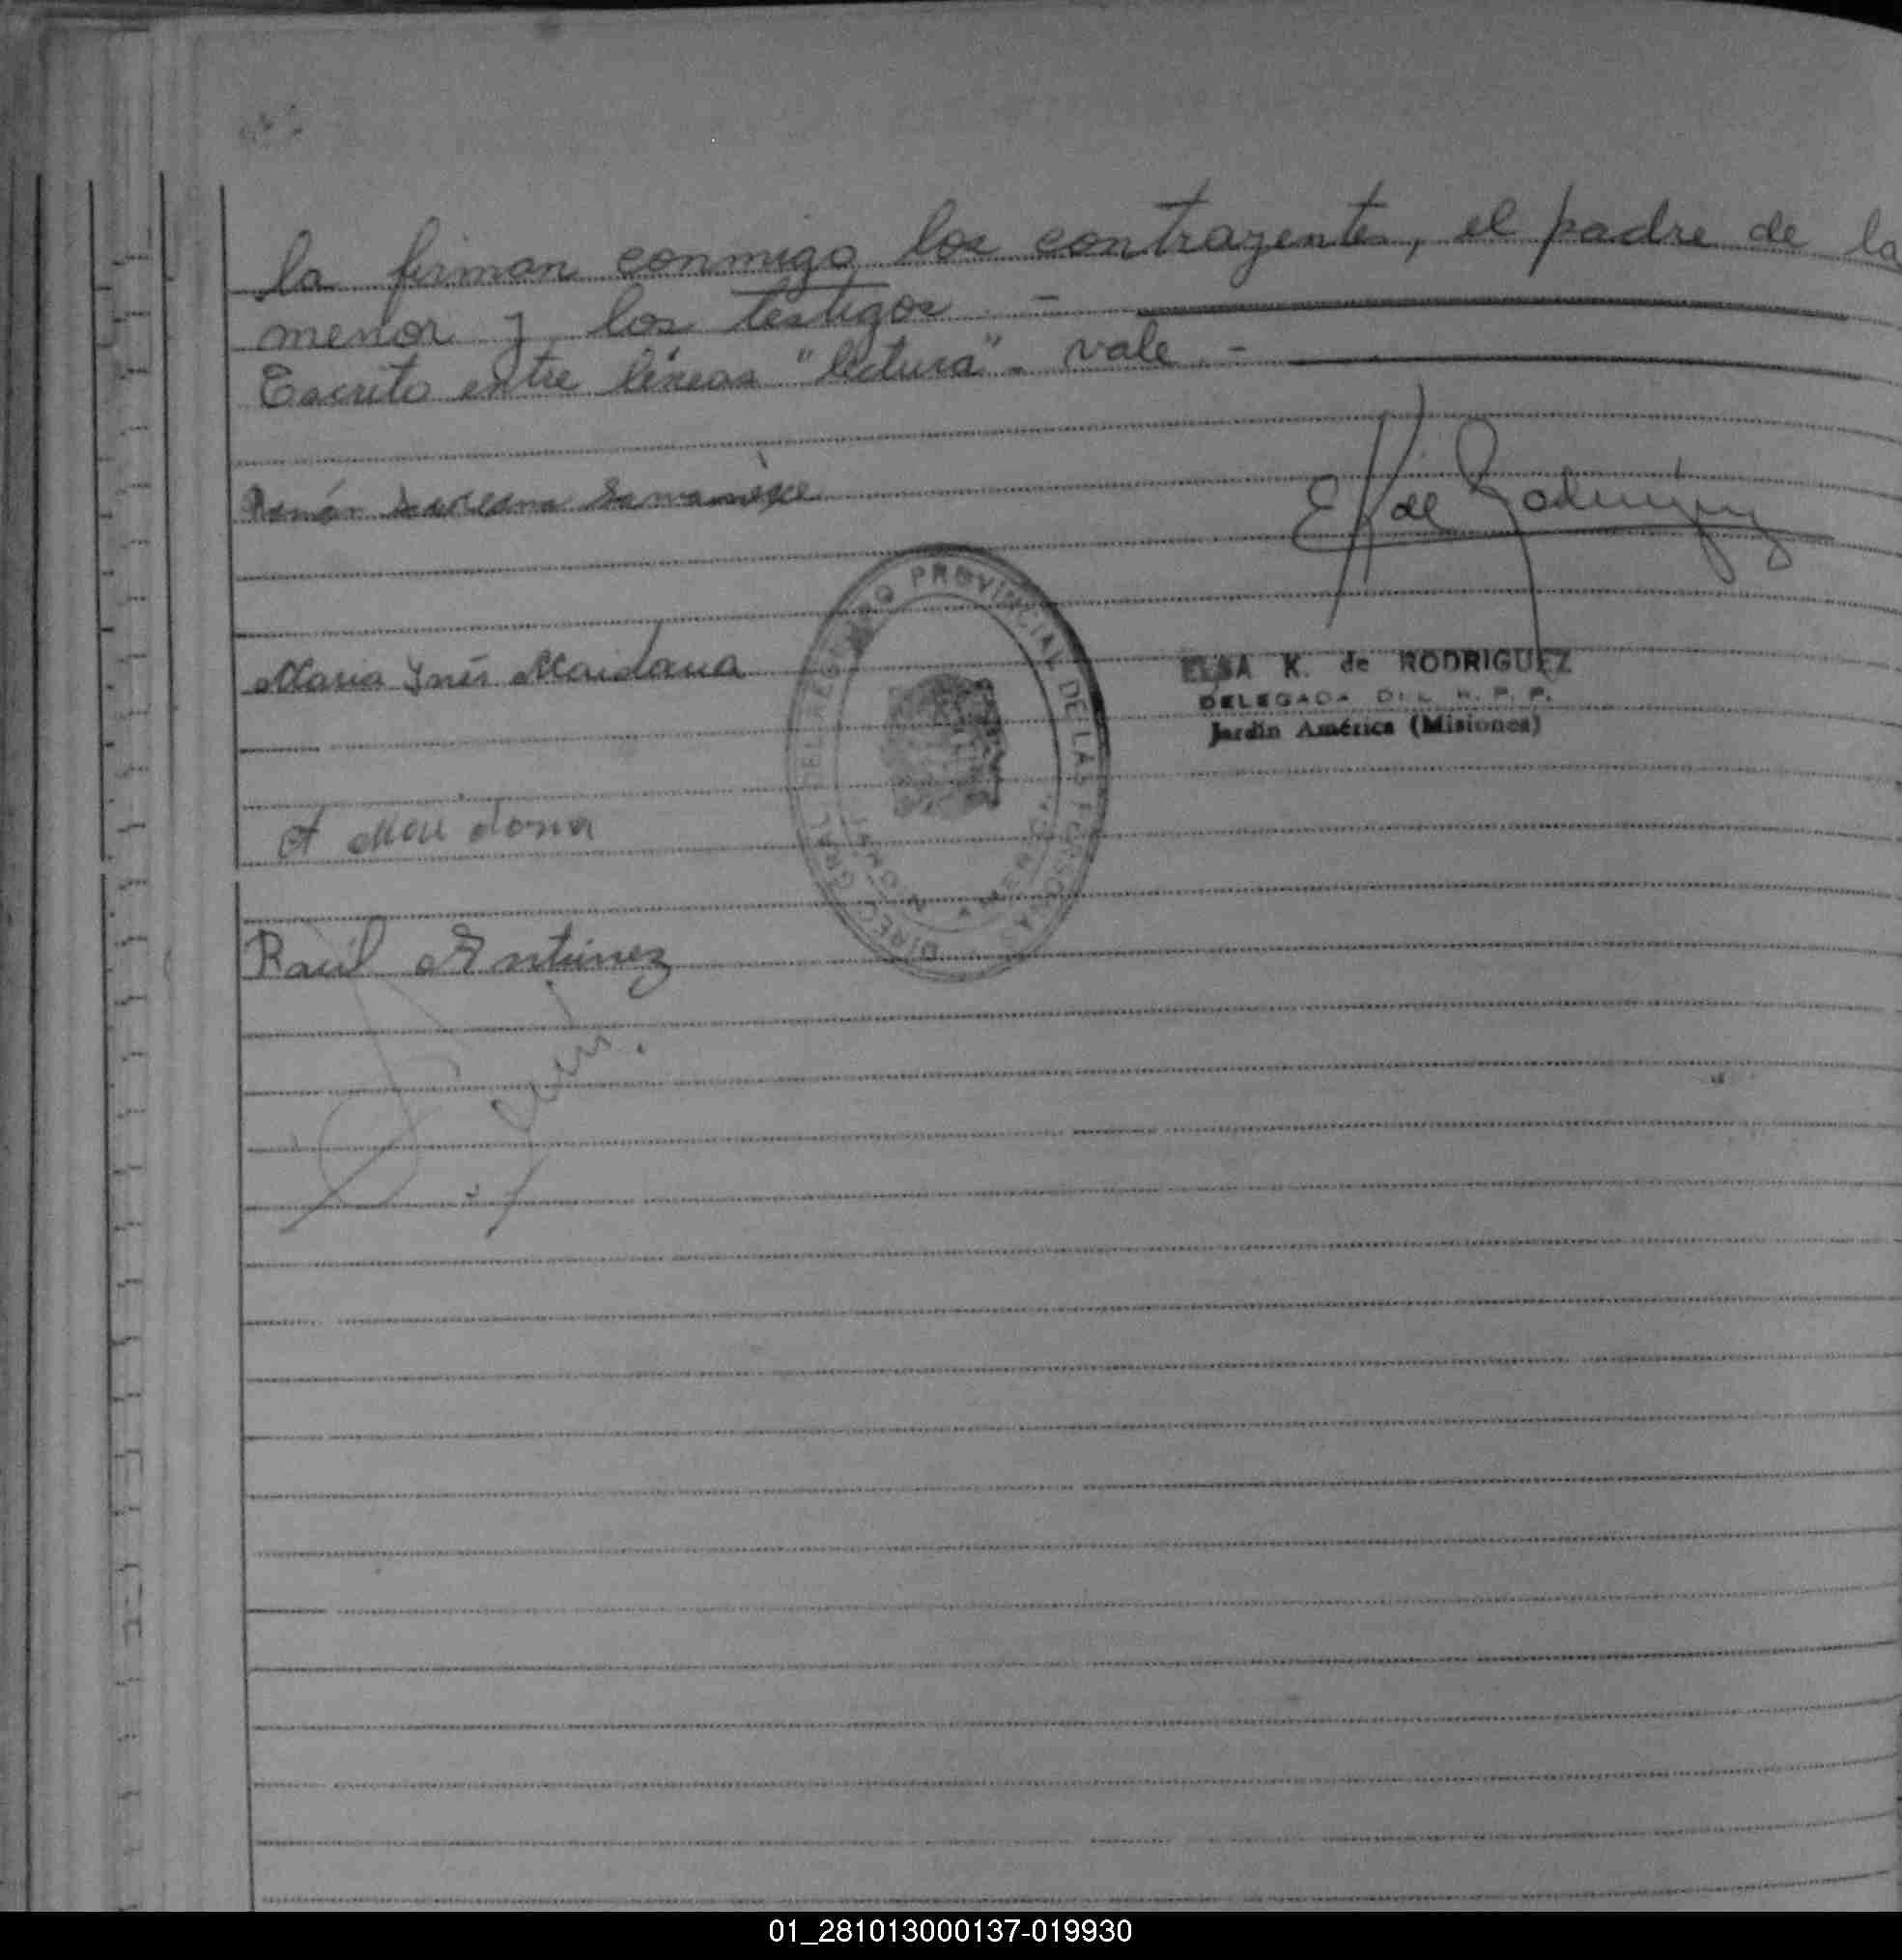 la firman conmigo los contrayentes, el padre de la
menor y los testigos. -
Escrito entre líneas "lectura" - vale. -
Ramón
E K de Rodriguez
María Inés Maidana
ELSA K. de RODRIGUEZ
DELEGADA DEL R. P. P.
Jardín América (Misiones)
DIREC. GRAL. DEL REGISTRO PROVINCIAL DE LAS PERSONAS
A Maidana
Raúl Antúnez
01_281013000137-019930